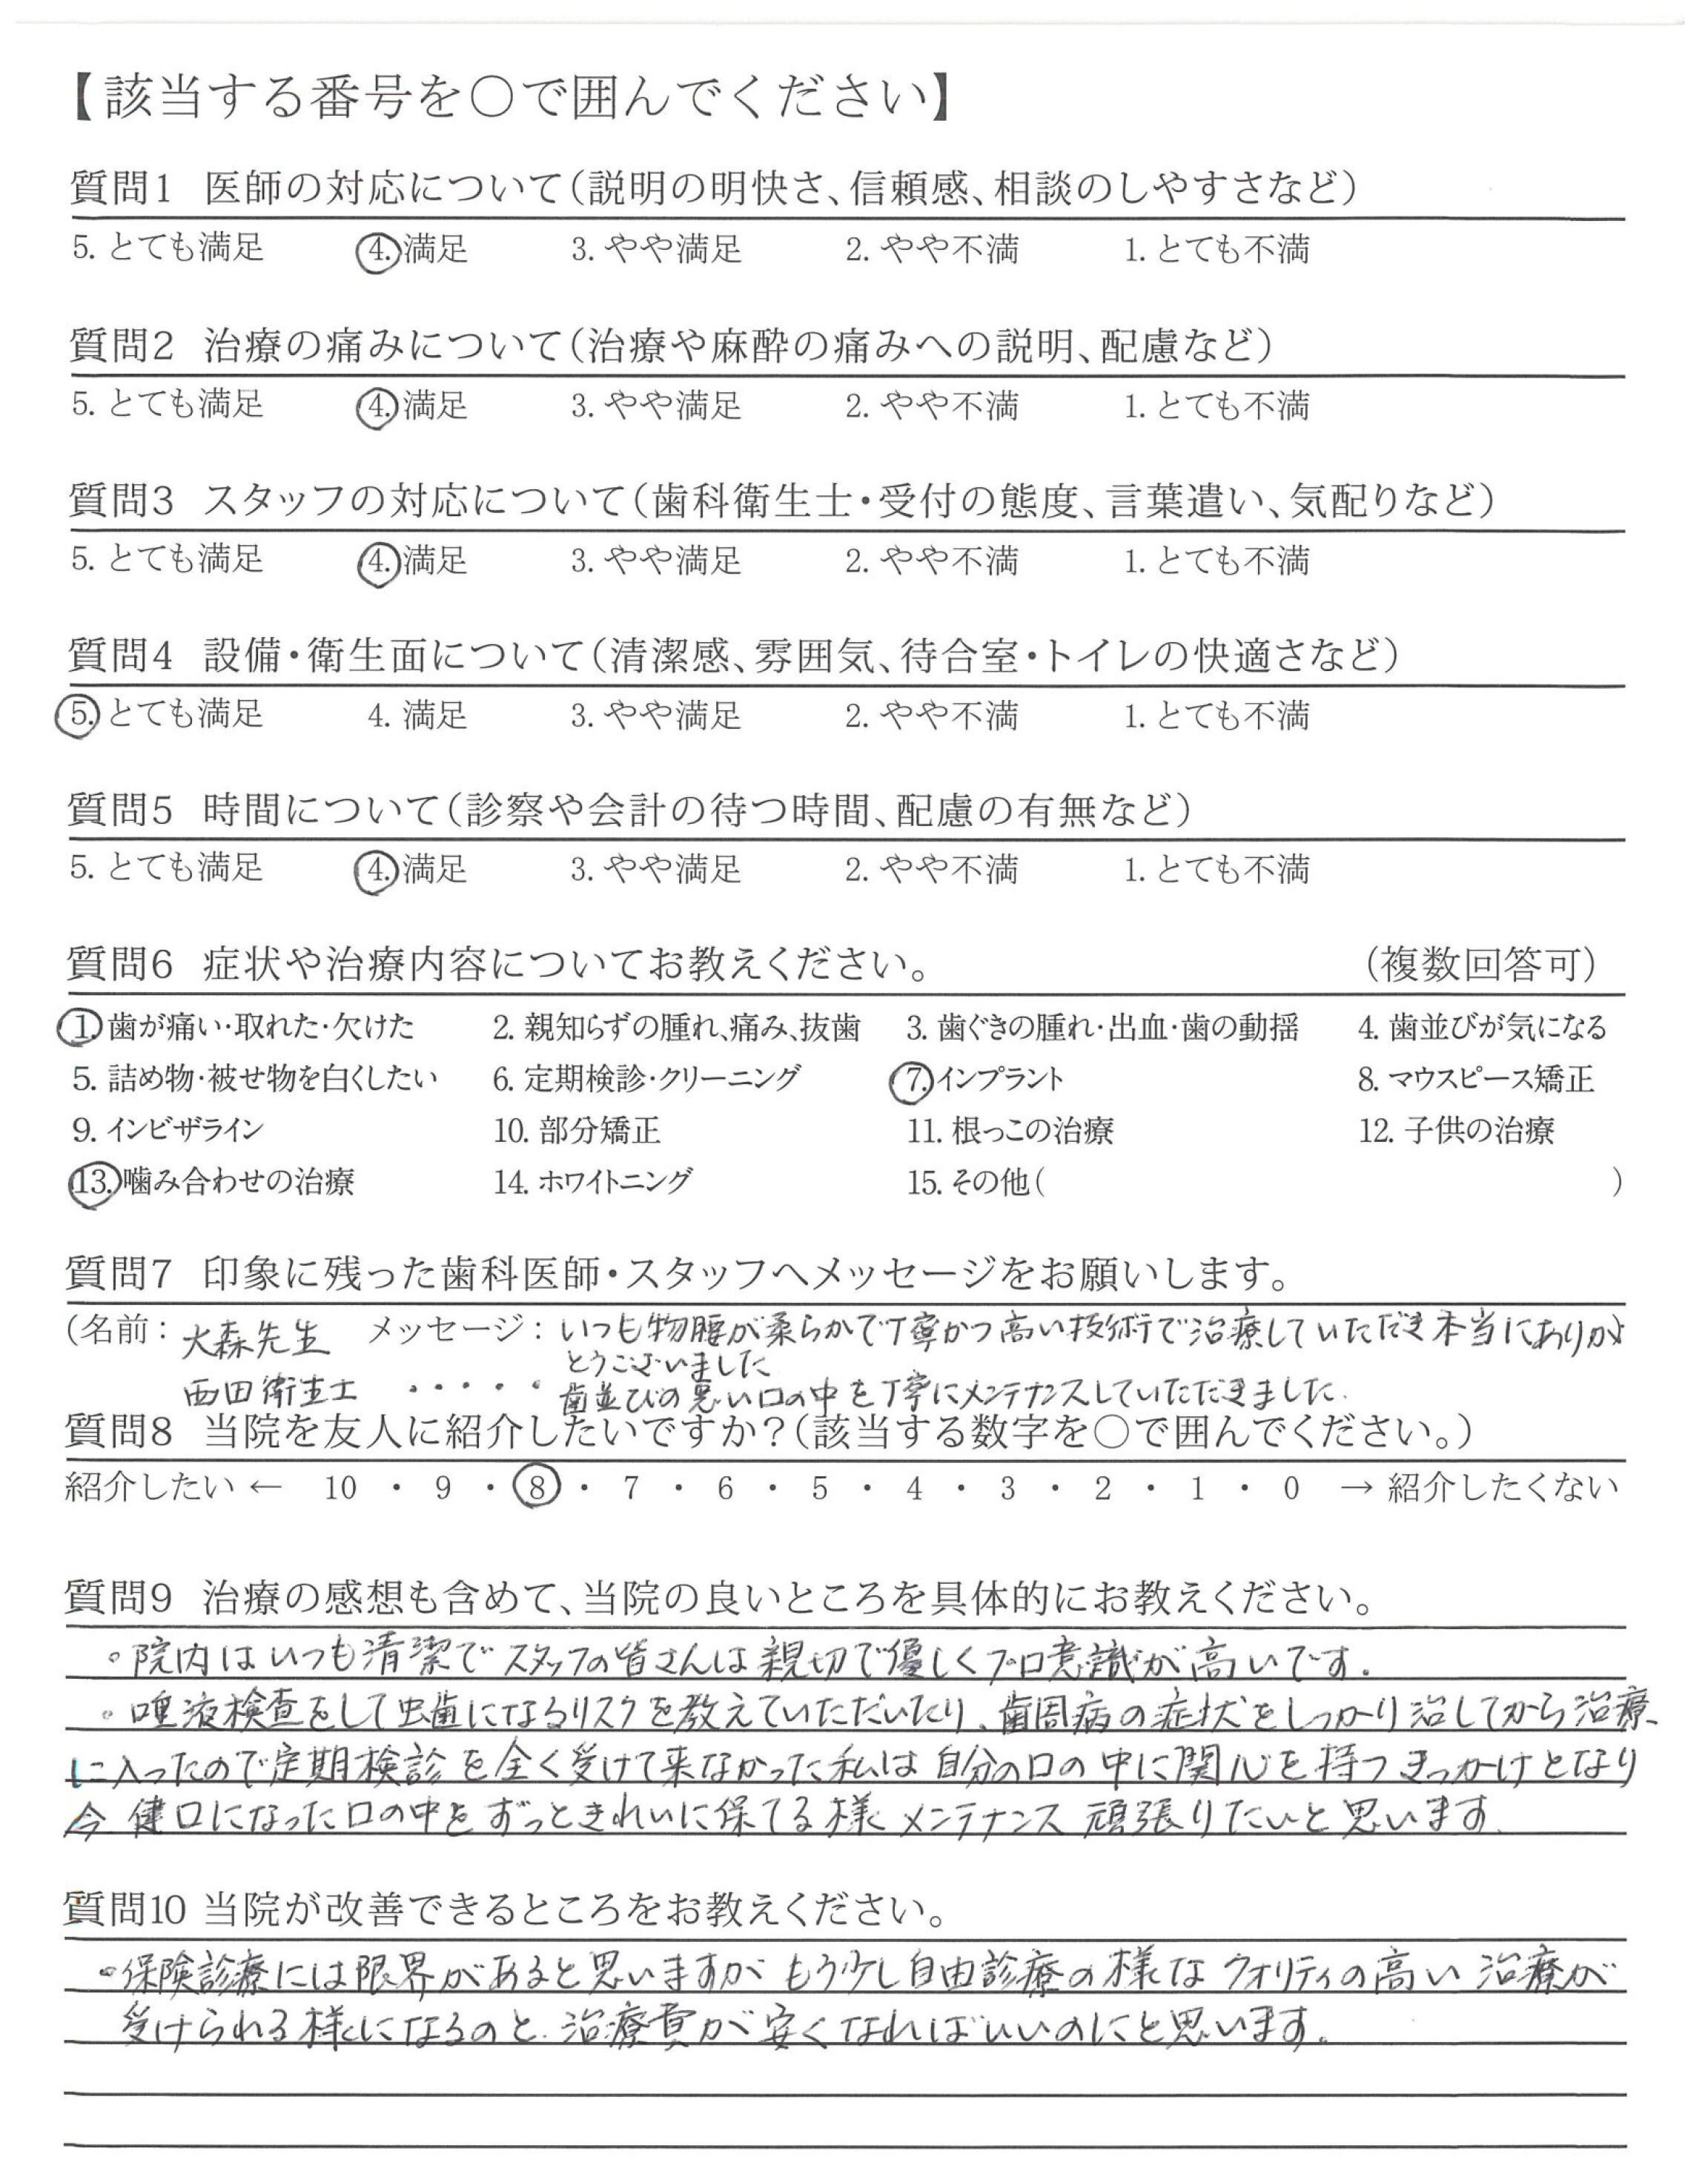 【該当する番号を○で囲んでください】
質問1 医師の対応について（説明の明快さ、信頼感、相談のしやすさなど）
5. とても満足 4. 満足 3. やや満足 2. やや不満 1. とても不満
質問2 治療の痛みについて（治療や麻酔の痛みへの説明、配慮など）
5. とても満足 4. 満足 3. やや満足 2. やや不満 1. とても不満
質問3 スタッフの対応について（歯科衛生士・受付の態度、言葉遣い、気配りなど）
5. とても満足 4. 満足 3. やや満足 2. やや不満 1. とても不満
質問4 設備・衛生面について（清潔感、雰囲気、待合室・トイレの快適さなど）
5. とても満足 4. 満足 3. やや満足 2. やや不満 1. とても不満
質問5 時間について（診察や会計の待つ時間、配慮の有無など）
5. とても満足 4. 満足 3. やや満足 2. やや不満 1. とても不満
質問6 症状や治療内容についてお教えください。 （複数回答可）
1. 歯が痛い・取れた・欠けた 2. 親知らずの腫れ、痛み、抜歯 3. 歯ぐきの腫れ・出血・歯の動揺 4. 歯並びが気になる
5. 詰め物・被せ物を白くしたい 6. 定期検診・クリーニング 7. インプラント 8. マウスピース矯正
9. インビザライン 10. 部分矯正 11. 根っこの治療 12. 子供の治療
13. 噛み合わせの治療 14. ホワイトニング 15. その他（ ）
質問7 印象に残った歯科医師・スタッフへメッセージをお願いします。
（名前： 大森先生 メッセージ： いつも物腰が柔らかで丁寧かつ高い技術で治療していただき本当にありが
とうございました
西田衛生士 ・・・・・ 歯並びの悪い口の中を丁寧にメンテナンスしていただきました.
質問8 当院を友人に紹介したいですか？（該当する数字を○で囲んでください。）
紹介したい ← 10 ・ 9 ・ 8 ・ 7 ・ 6 ・ 5 ・ 4 ・ 3 ・ 2 ・ 1 ・ 0 → 紹介したくない
質問9 治療の感想も含めて、当院の良いところを具体的にお教えください。
。院内はいつも清潔でスタッフの皆さんは親切で優しくプロ意識が高いです.
。唾液検査をして虫歯になるリスクを教えていただいたり、歯周病の症状をしっかり治してから治療
に入ったので定期検診を全く受けて来なかった私は自分の口の中に関心を持つきっかけとなり
今 健口になった口の中をずっときれいに保てる様メンテナンス頑張りたいと思います.
質問10 当院が改善できるところをお教えください。
・保険診療には限界があると思いますが もう少し自由診療の様なクオリティの高い治療が
受けられる様になるのと、治療費が安くなればいいのにと思います.